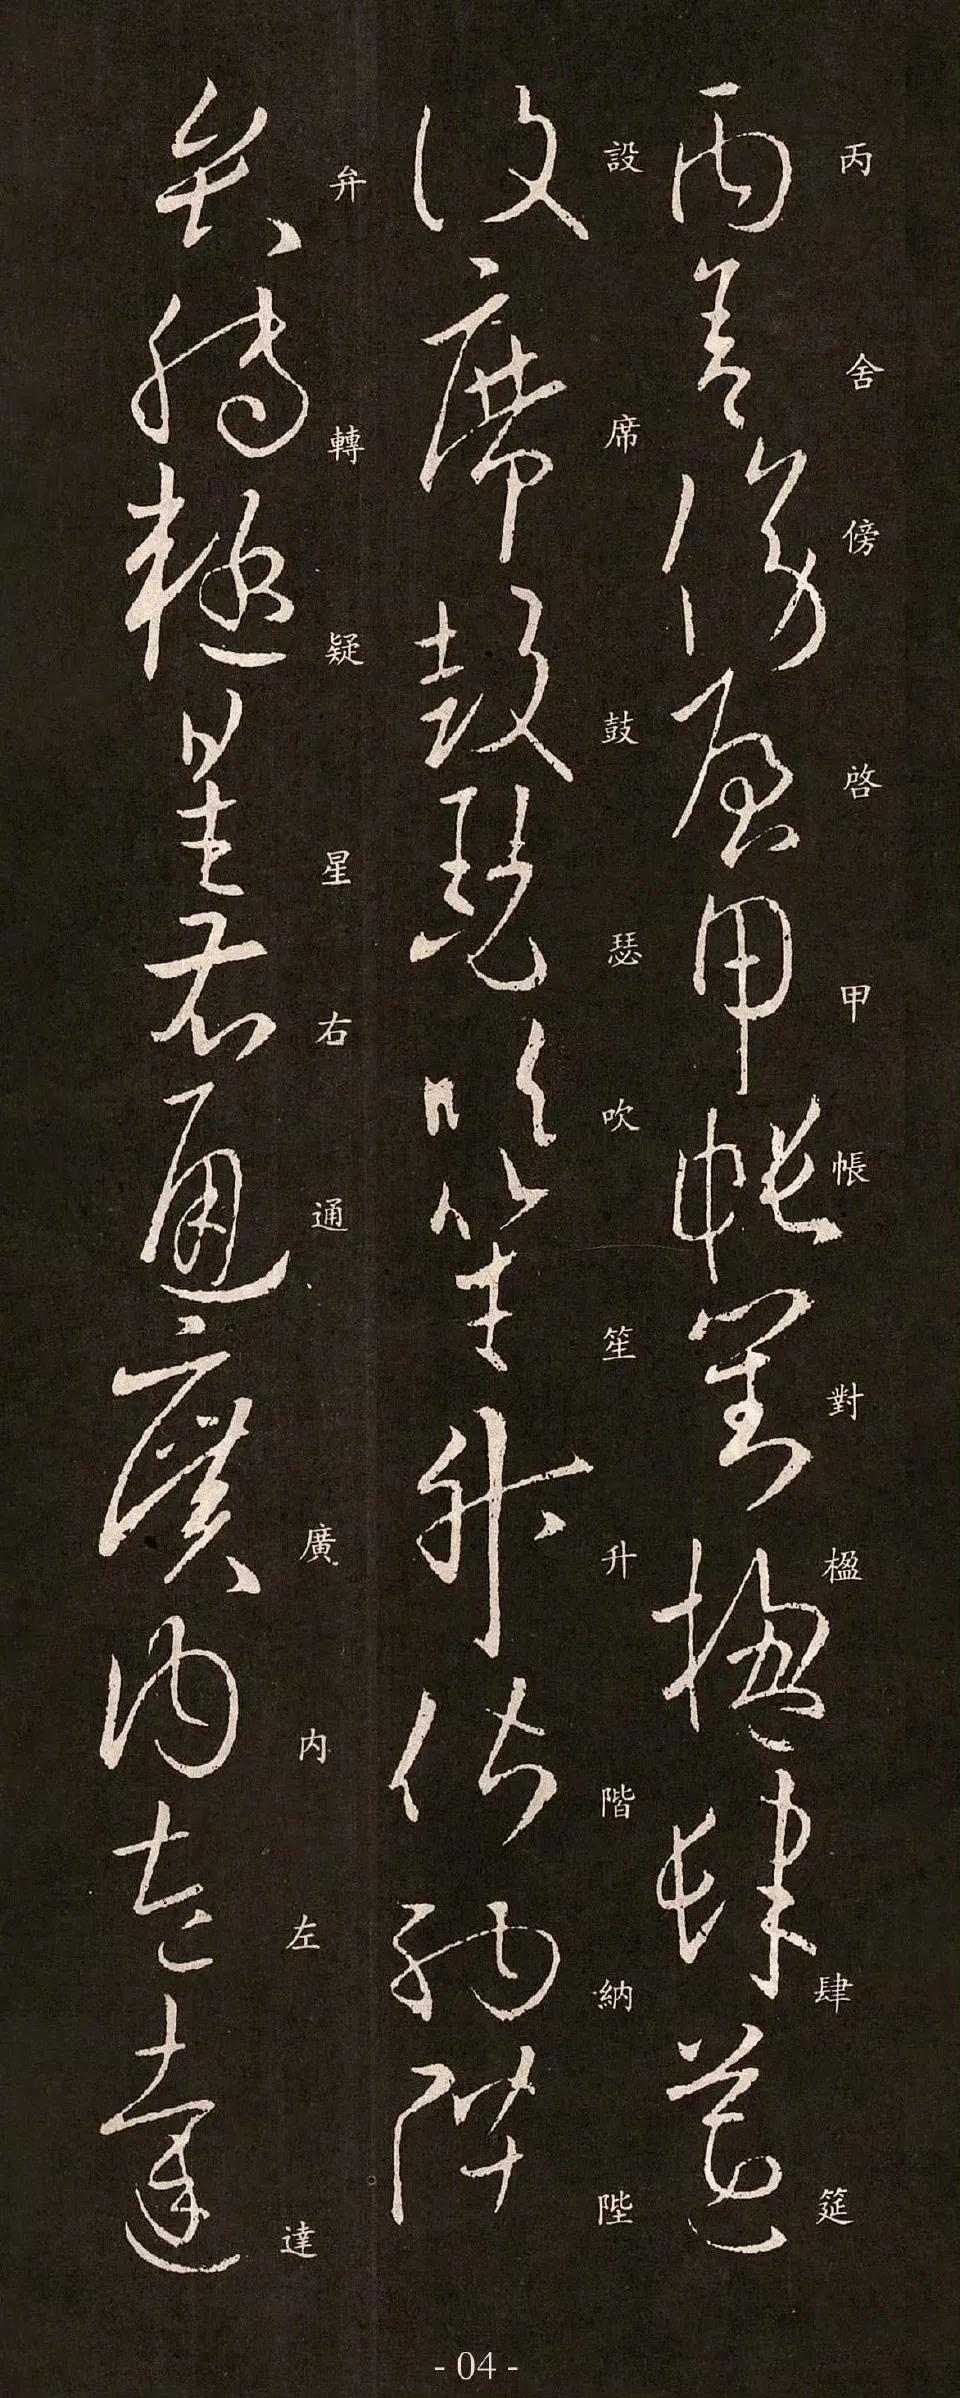 丙舍傍啓甲帳對楹肆筵
設席鼓瑟吹笙升階納陛
弁轉疑星右通廣内左達
- 04 -